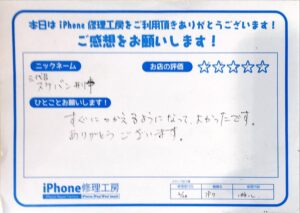 本日は iPhone 修理工房をご利用頂きありがとうございます!
ご感想をお願いします!
ニックネーム
お店の評価
☆☆☆☆☆
二代目
スケバン刑事
ひとことお願いします!
すぐにつかえるようになって、よかったです。
ありがとうございます。
iPhone修理工房